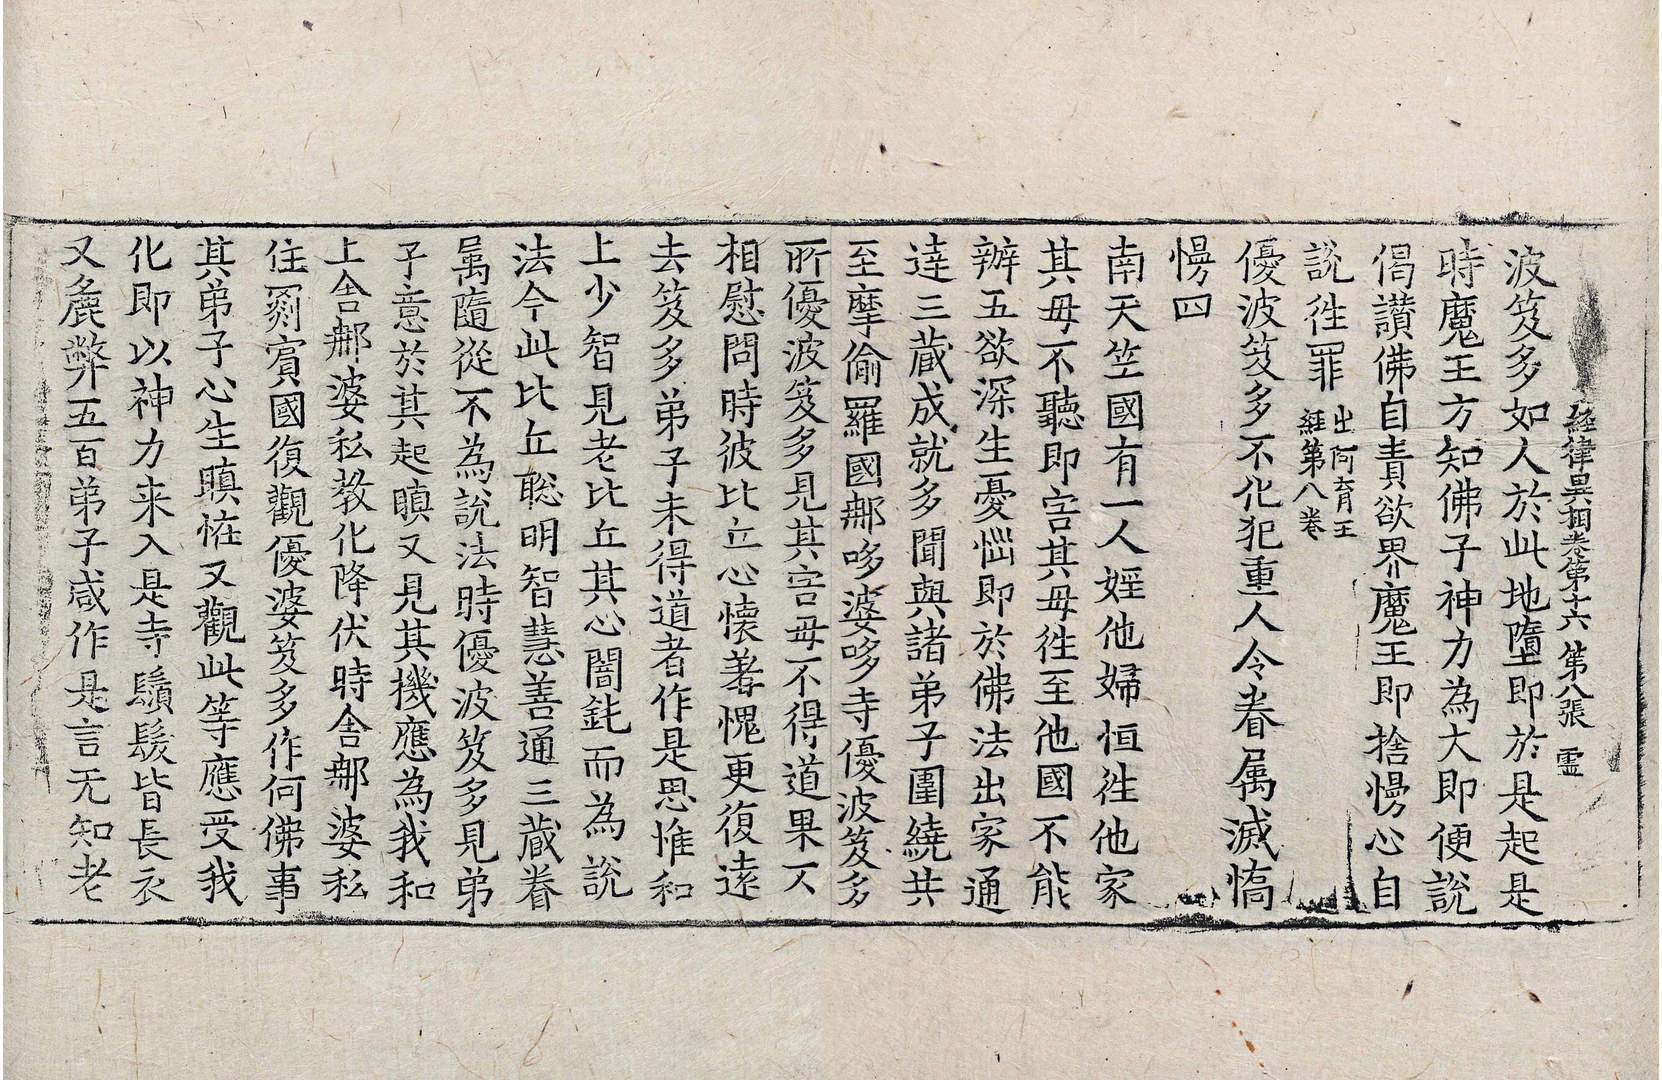 經律異相卷第十六 第八張 霊
波笈多如人於此地墮即於是起是
時魔王方知佛子神力為大即便說
偈讃佛自責欲界魔王即捨慢心自
說徃罪
出阿育王
經第八卷
優波笈多不化犯重人令眷属滅憍
慢四
南天笠國有一人婬他婦恒徃他家
其母不聽即害其母徃至他國不能
辦五欲深生憂惱即於佛法出家通
達三蔵成就多聞與諸弟子圍繞共
至摩偷羅國𨚗哆婆哆寺優波笈多
所優波笈多見其害母不得道果又
相慰問時彼比丘心懷著愧更復遠
去笈多弟子未得道者作是思惟和
上少智見老比丘其心闇鈍而為說
法今此比丘聡明智慧善通三蔵眷
属隨從不為說法時優波笈多見弟
子意於其起瞋又見其機應為我和
上舍𨚗婆私教化降伏時舍𨚗婆私
住罽賓國復觀優婆笈多作何佛事
其弟子心生瞋恠又觀此等應受我
化即以神力来入是寺鬚髮皆長衣
又麁弊五百弟子咸作是言无知老